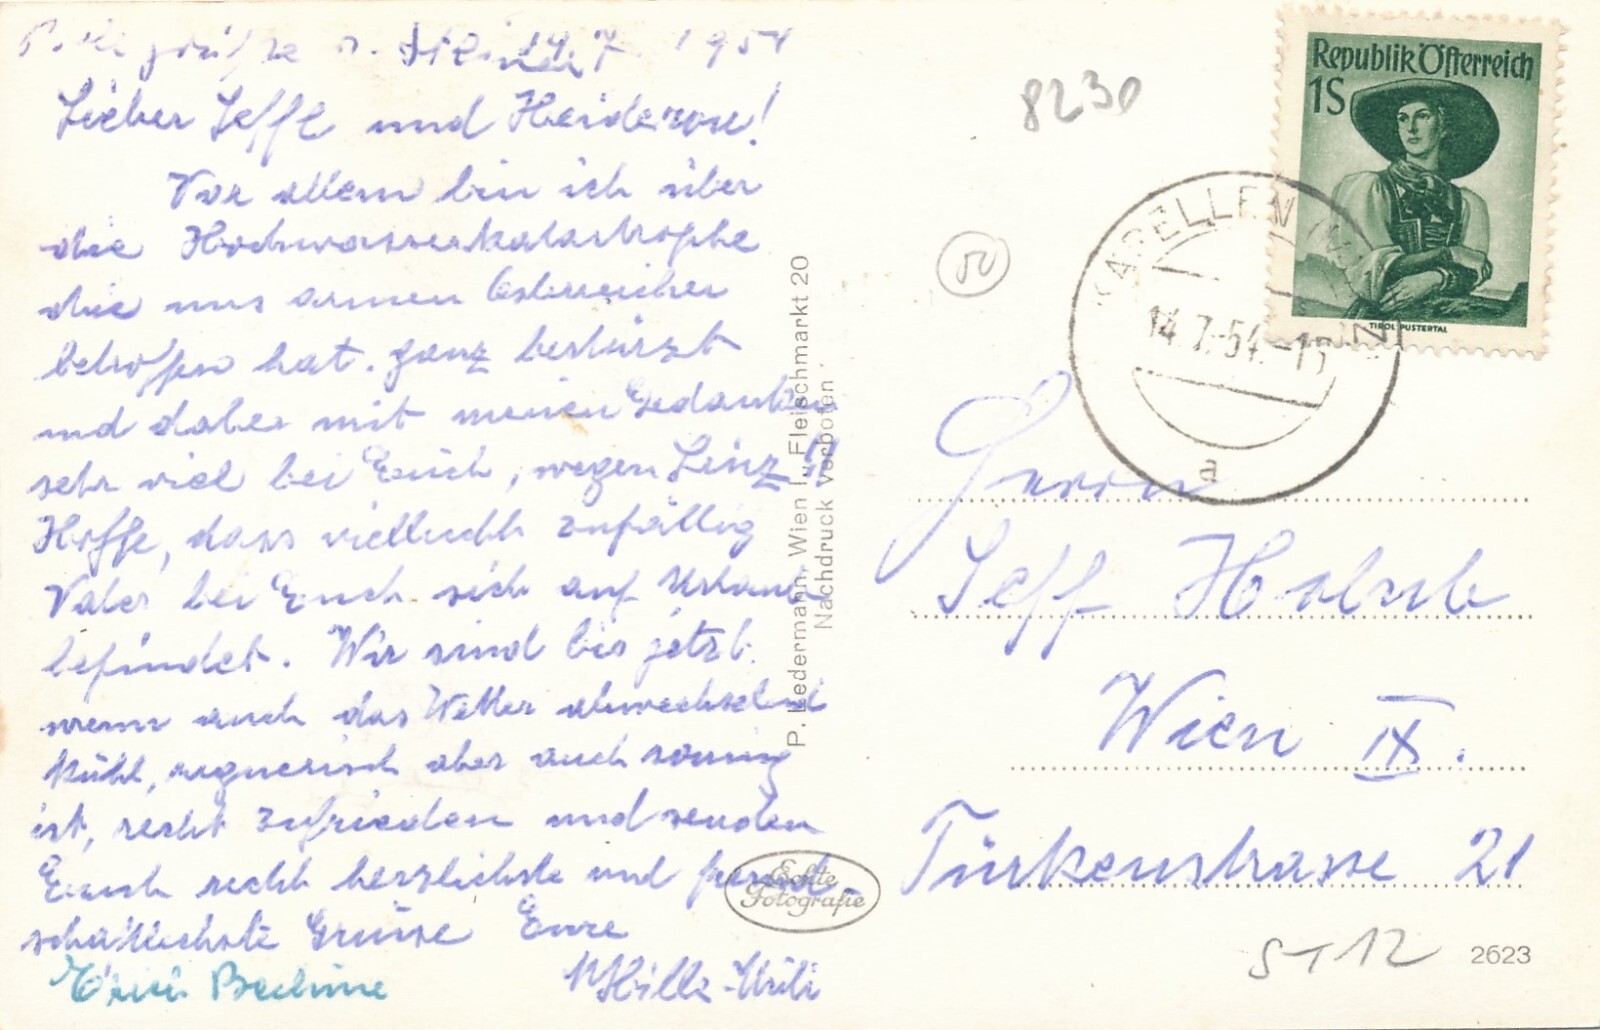 1954
Lieber Seffl und Heiderose!
Vor allem bin ich über
die Hochwasserkatastrophe
die uns armen Österreicher
betroffen hat. ganz bestürzt
und dabei mit meinen Gedanken
sehr viel bei Euch, wegen Linz!!
Hoffe, dass vielleicht zufällig
Vater bei Euch sich auf Urlaub
befindet. Wir sind bis jetzt.
wenn auch das Wetter abwechselnd
kühl, regnerisch aber auch sonnig
ist, recht zufrieden und senden
Euch recht herzlichste und freund-
schaftlichste Grüsse Eure
P. Ledermann, Wien I., Fleischmarkt 20
Nachdruck verboten.
Echte
Fotografie
8230
50
Republik Österreich
1S
TIROL PUSTERTAL
KAPELLEN
14.7.54.-15
a
Herrn
Seff Holub
Wien IX.
Türkenstrasse 21
ST12
2623